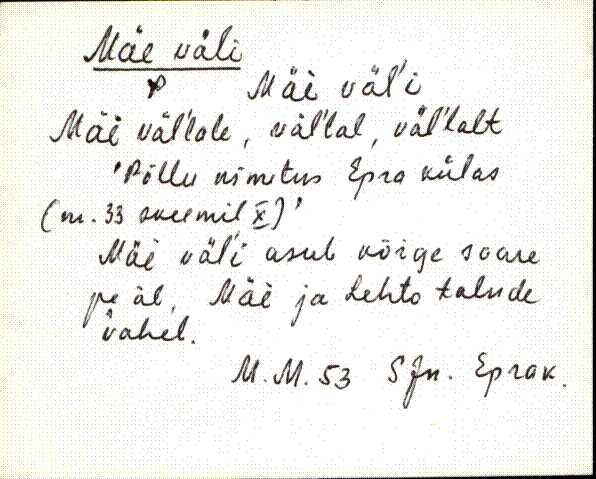 Mäe väli
P Mäè väl'i
Mäè väl'lale, väl'lal, väl'lalt
'Põllu nimetus Epra külas
(nr. 33 skeemil X)'
Mäè väl'i asub kõige soare
peàl, Mäè ja Lehto talude
vahel.
M.M. 53 SJn. Eprak.